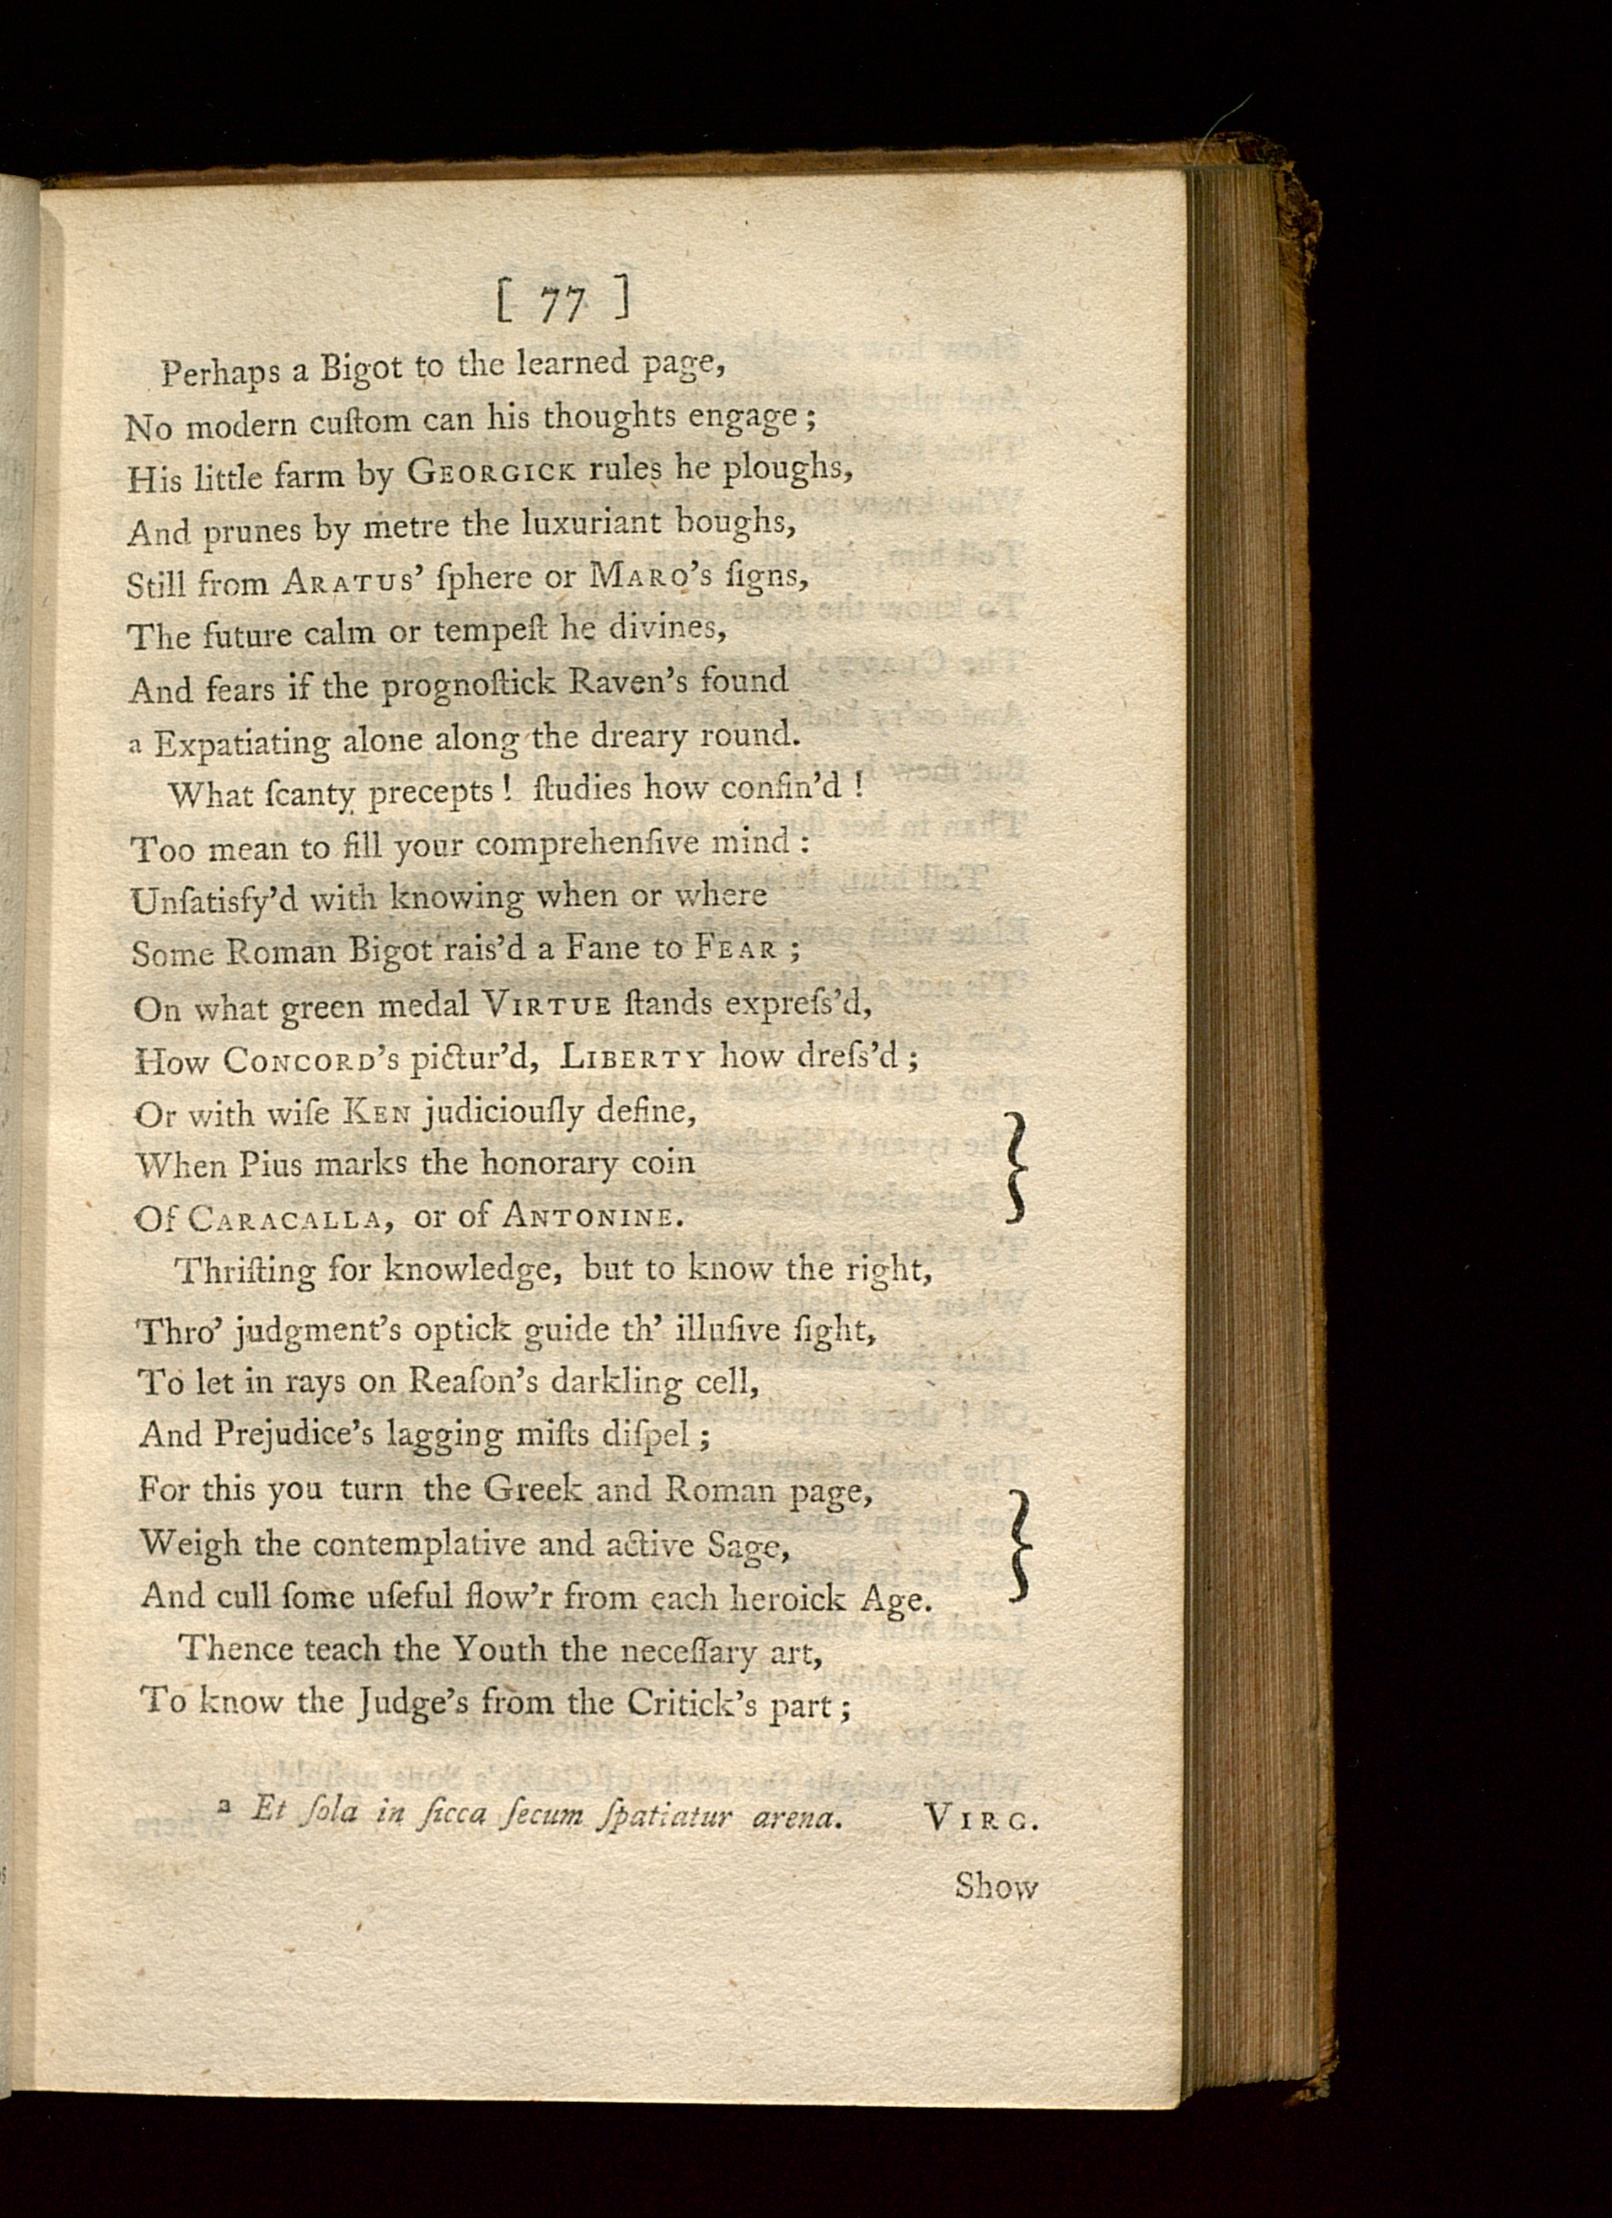 [ 77 ]
Perhaps a Bigot to the learned page,
No modern cuſtom can his thoughts engage;
His little farm by GEORGICK rules he ploughs,
And prunes by metre the luxuriant boughs,
Still from ARATUS' ſphere or MARO's ſigns,
The future calm or tempeſt he divines,
And fears if the prognoſtick Raven's found
a Expatiating alone along the dreary round.
What ſcanty precepts! ſtudies how confin'd!
Too mean to fill your comprehenſive mind:
Unſatisfy'd with knowing when or where
Some Roman Bigot rais'd a Fane to FEAR;
On what green medal VIRTUE ſtands expreſs'd,
How CONCORD's pictur'd, LIBERTY how dreſs'd;
Or with wiſe KEN judiciouſly define,
When Pius marks the honorary coin
Of CARACALLA, or of ANTONINE.
Thriſting for knowledge, but to know the right,
Thro' judgment's optick guide th' illuſive ſight,
To let in rays on Reaſon's darkling cell,
And Prejudice's lagging miſts diſpel;
For this you turn the Greek and Roman page,
Weigh the contemplative and active Sage,
And cull ſome uſeful flow'r from each heroick Age.
Thence teach the Youth the neceſſary art,
To know the Judge's from the Critick's part;
a Et ſola in ſicca ſecum ſpatiatur arena. VIRG.
Show